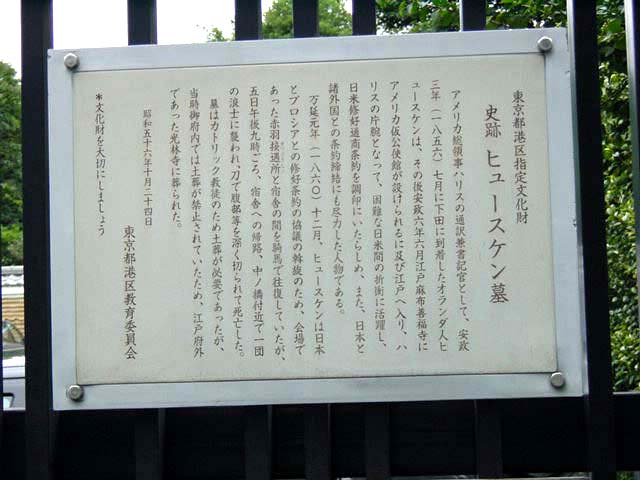 東京都港区指定文化財
史跡 ヒュースケン墓
アメリカ総領事ハリスの通訳兼書記官として、安政
三年（一八五六）七月に下田に到着したオランダ人ヒ
ュースケンは、その後安政六年六月江戸麻布善福寺に
アメリカ仮公使館が設けられるに及び江戸へ入り、ハ
リスの片腕となって、困難な日米間の折衝に活躍し、
日米修好通商条約を調印にいたらしめ、また、日本と
諸外国との条約締結にも尽力した人物である。
万延元年（一八六〇）十二月、ヒュースケンは日本
とプロシアとの修好条約の協議の斡旋のため、会場で
あった赤羽接遇所と宿舎の間を騎馬で往復していたが、
五日午後九時ごろ、宿舎への帰路、中ノ橋付近で一団
の浪士に襲われ、刀で腹部等を深く切られて死亡した。
墓はカトリック教徒のため土葬が必要であったが、
当時御府内では土葬が禁止されていたため、江戸府外
であった光林寺に葬られた。
昭和五十六年十月二十四日
東京都港区教育委員会
＊文化財を大切にしましょう